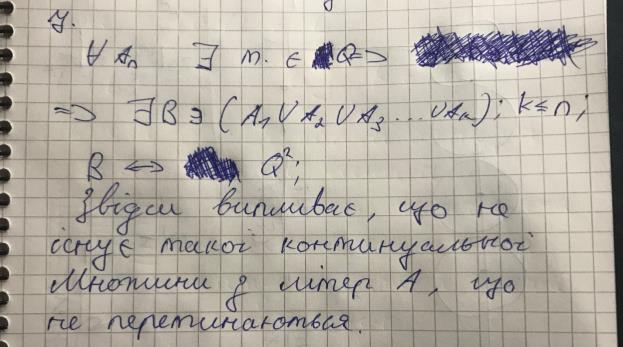 7.
∀ Aₙ ∃ т. ∈ Q =>
=> ∃ B ∋ (A₁ ∪ A₂ ∪ A₃ ... ∪ Aₖ); k ≤ n;
B ↔ Q²;
Звідси випливає, що не
існує такої континуальної
множини з літер А, що
не перетинаються.